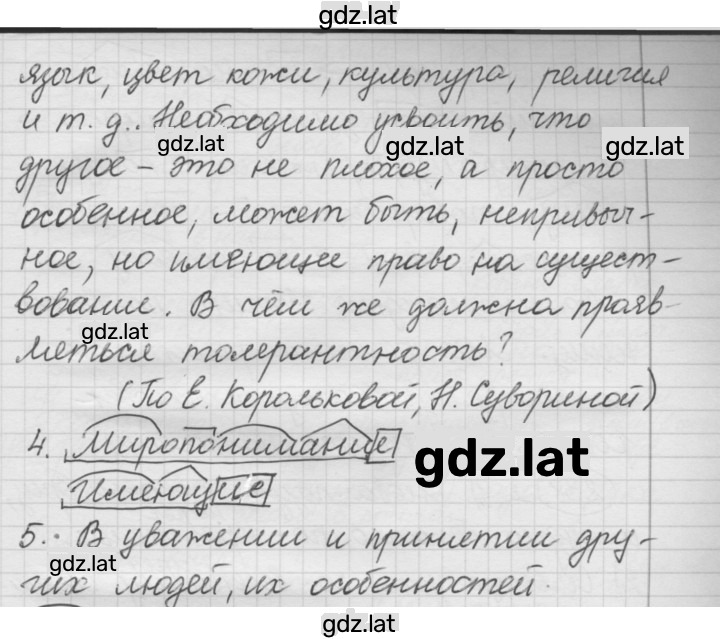 gdz.lat
язык, цвет кожи, культура, религия
и т. д.. Необходимо усвоить, что
gdz.lat
gdz.lat
gdz.lat
другое – это не плохое, а просто
особенное, может быть, непривыч-
ное, но имеющее право на сущест-
вование. В чём же должна прояв-
gdz.lat
ляться толерантность?
(По Е. Корольковой, Н. Сувориной)
4. Миропонимание
gdz.lat
Имеющие
5. В уважении и принятии дру-
gdz.lat
гих людей, их особенностей.
gdz.lat